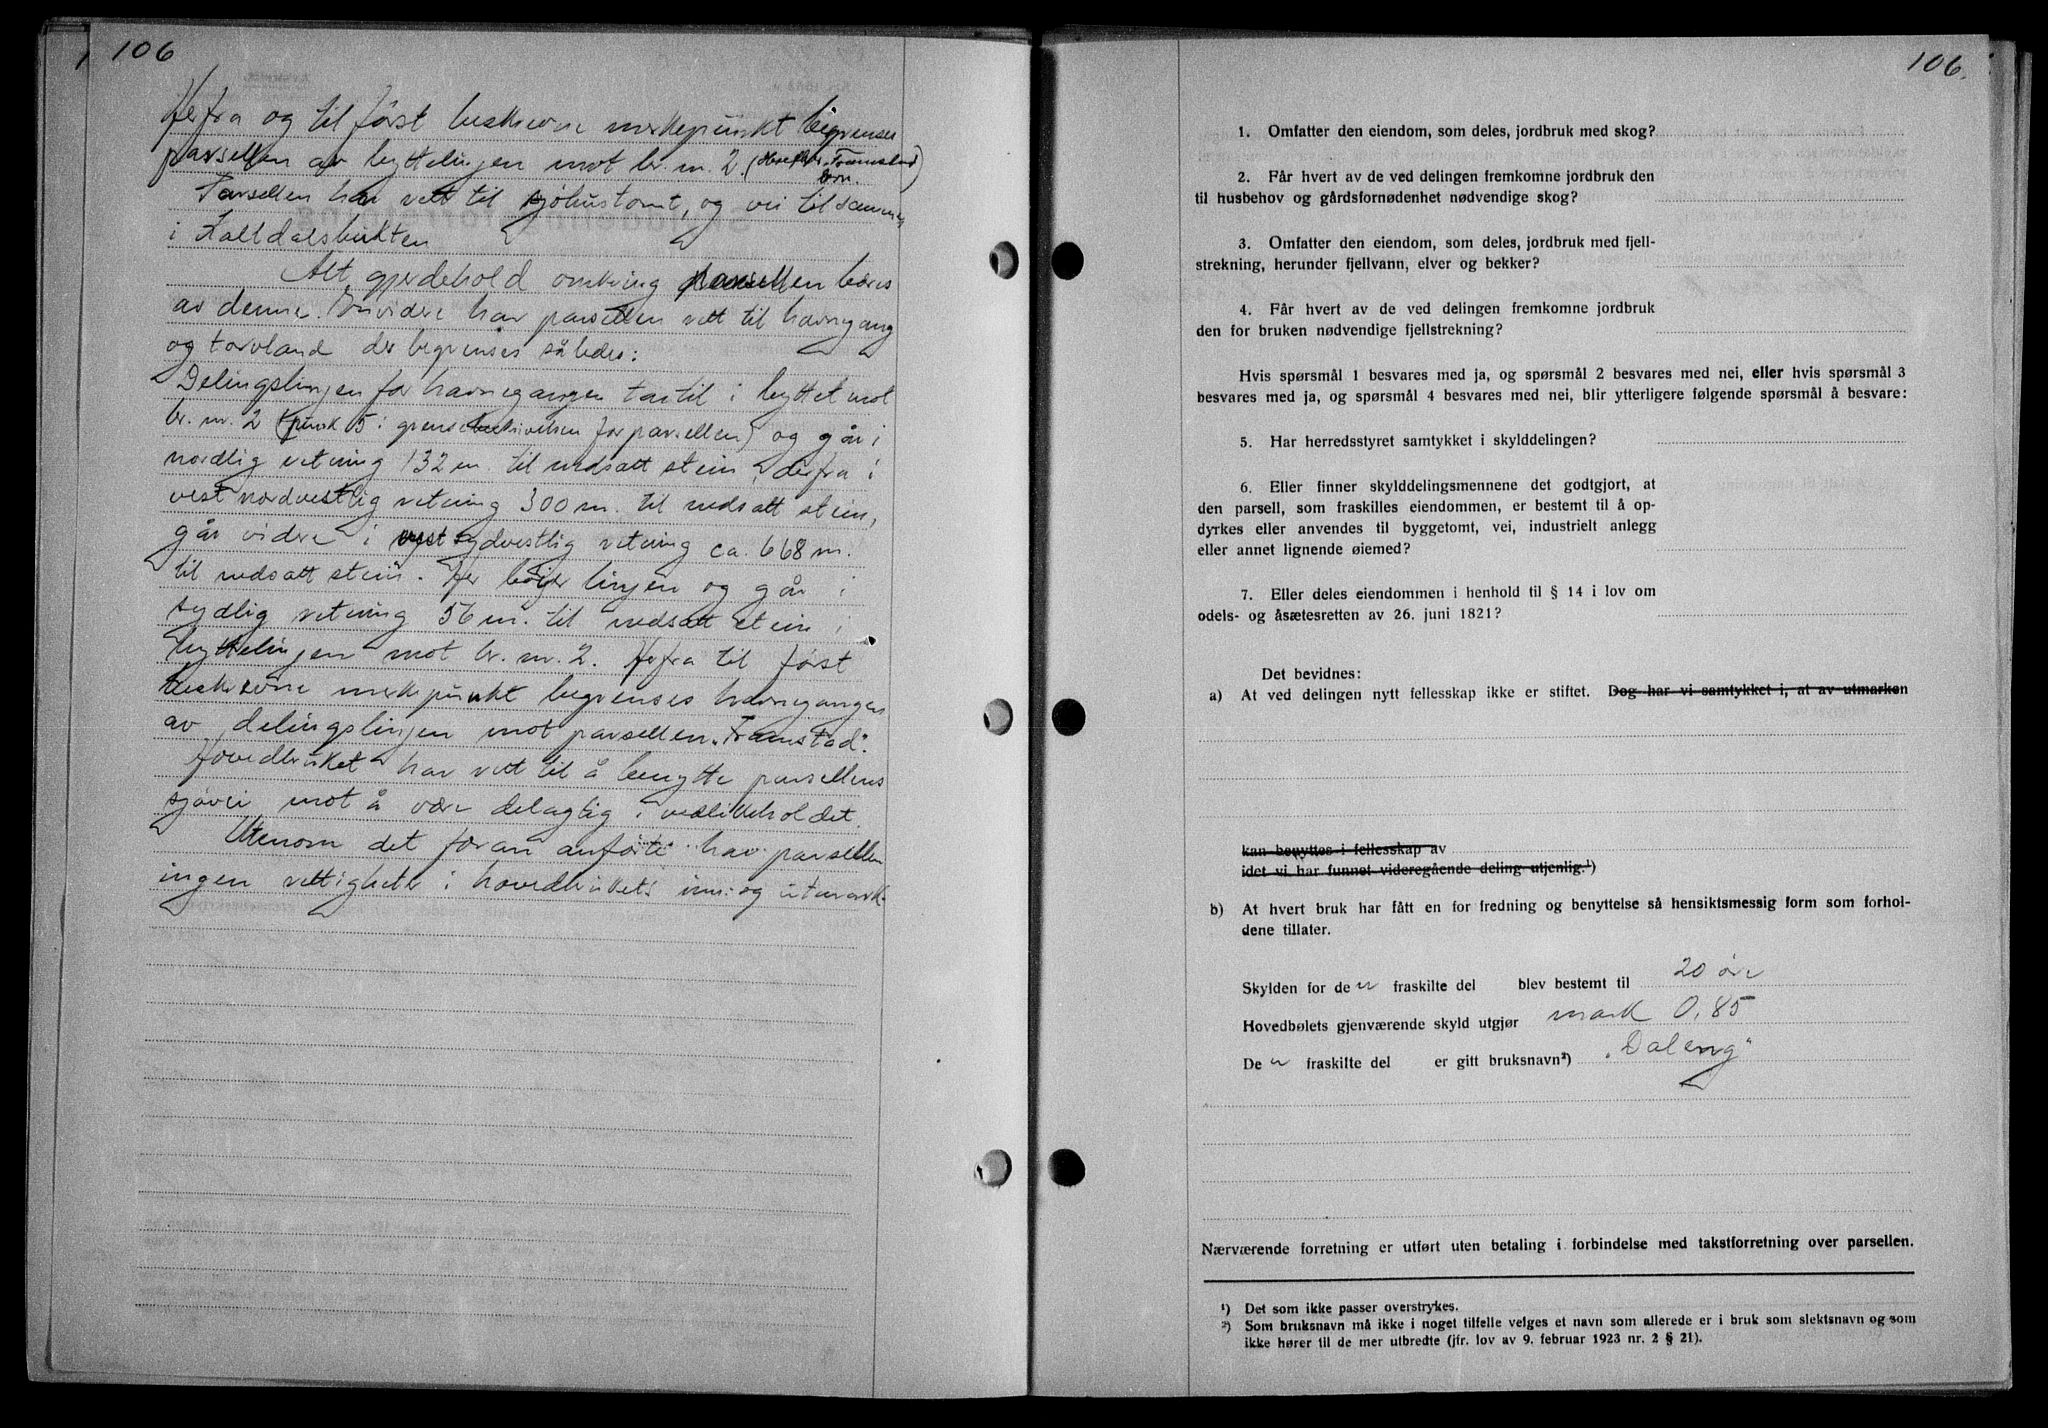 106
Herfra og til först beskrevne merkepunkt begrenses
parsellen av byttelinjen mot br. nr. 2.
Parsellen har rett til sjöhustomt, og vei til samme
i Kaltdalsbukten
Alt gjerdehold omkring parsellen bæres
av denne. Envidere har parsellen rett til havnegang
og torvland der begrenses således:
Delingslinjen for havnegangen tar til i byttet mot
br. nr. 2 (punk 5 i grensebeskrivelsen for parsellen) og går i
nordlig retning 132 m. til nedsatt stein, derfra i
vest nordvestlig retning 300 m. til nedsatt stein,
går videre i vest sydvestlig retning ca. 668 m.
til nedsatt stein. Her böier linjen og går i
sydlig retning 56 m. til nedsatt stein i
byttelinjen mot br. nr. 2. Herfra til först
beskrevne merkepunkt begrenses havnegangen
av delingslinjen mot parsellen „Framstad".
Hovedbruket har rett til å benytte parsellens
sjövei mot å være delagtig i vedlikeholdet.
Utenom det foran anförte har parsellen
ingen rettigheter i hovedbrukets inn- og utmark.
106.
1. Omfatter den eiendom, som deles, jordbruk med skog?
2. Får hvert av de ved delingen fremkomne jordbruk den
til husbehov og gårdsfornødenhet nødvendige skog?
3. Omfatter den eiendom, som deles, jordbruk med fjell-
strekning, herunder fjellvann, elver og bekker?
4. Får hvert av de ved delingen fremkomne jordbruk
den for bruken nødvendige fjellstrekning?
Hvis spørsmål 1 besvares med ja, og spørsmål 2 besvares med nei, eller hvis spørsmål 3
besvares med ja, og spørsmål 4 besvares med nei, blir ytterligere følgende spørsmål å besvare:
5. Har herredsstyret samtykket i skylddelingen?
6. Eller finner skylddelingsmennene det godtgjort, at
den parsell, som fraskilles eiendommen, er bestemt til å op-
dyrkes eller anvendes til byggetomt, vei, industrielt anlegg
eller annet lignende øiemed?
7. Eller deles eiendommen i henhold til § 14 i lov om
odels- og åsætesretten av 26. juni 1821?
Det bevidnes:
a) At ved delingen nytt fellesskap ikke er stiftet. Dog har vi samtykket i, at av utmarken
kan benyttes i fellesskap av
idet vi har funnet videregående deling utjenlig.¹)
b) At hvert bruk har fått en for fredning og benyttelse så hensiktsmessig form som forhol-
dene tillater.
Skylden for den fraskilte del blev bestemt til 20 öre
Hovedbølets gjenværende skyld utgjør mark 0,85
Den fraskilte del er gitt bruksnavn²) „Daleng"
Nærværende forretning er utført uten betaling i forbindelse med takstforretning over parsellen.
¹) Det som ikke passer overstrykes.
²) Som bruksnavn må ikke i noget tilfelle velges et navn som allerede er i bruk som slektsnavn og som
ikke hører til de mer utbredte (jfr. lov av 9. februar 1923 nr. 2 § 21).